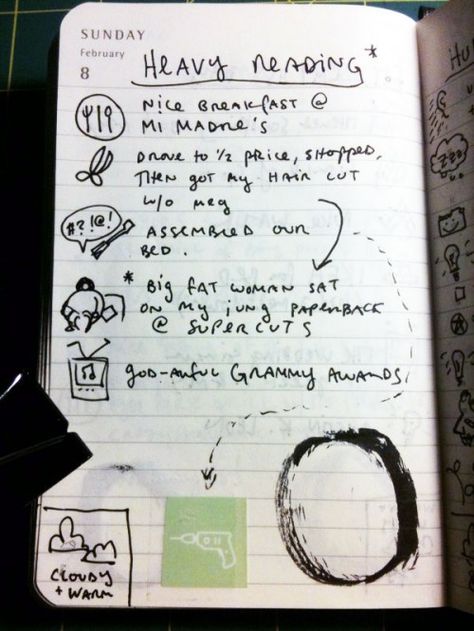 SUNDAY
February
8
HEAVY READING*
NICE BREAKFAST @
MI MADRE'S
DROVE TO ½ PRICE, SHOPPED,
THEN GOT MY HAIR CUT
W/O MEG
#?!@!
ASSEMBLED OUR
BED.
* BIG FAT WOMAN SAT
ON MY JUNG PAPERBACK
@ SUPERCUTS
GOD-AWFUL GRAMMY AWARDS
CLOUDY
+ WARM
ZZZ